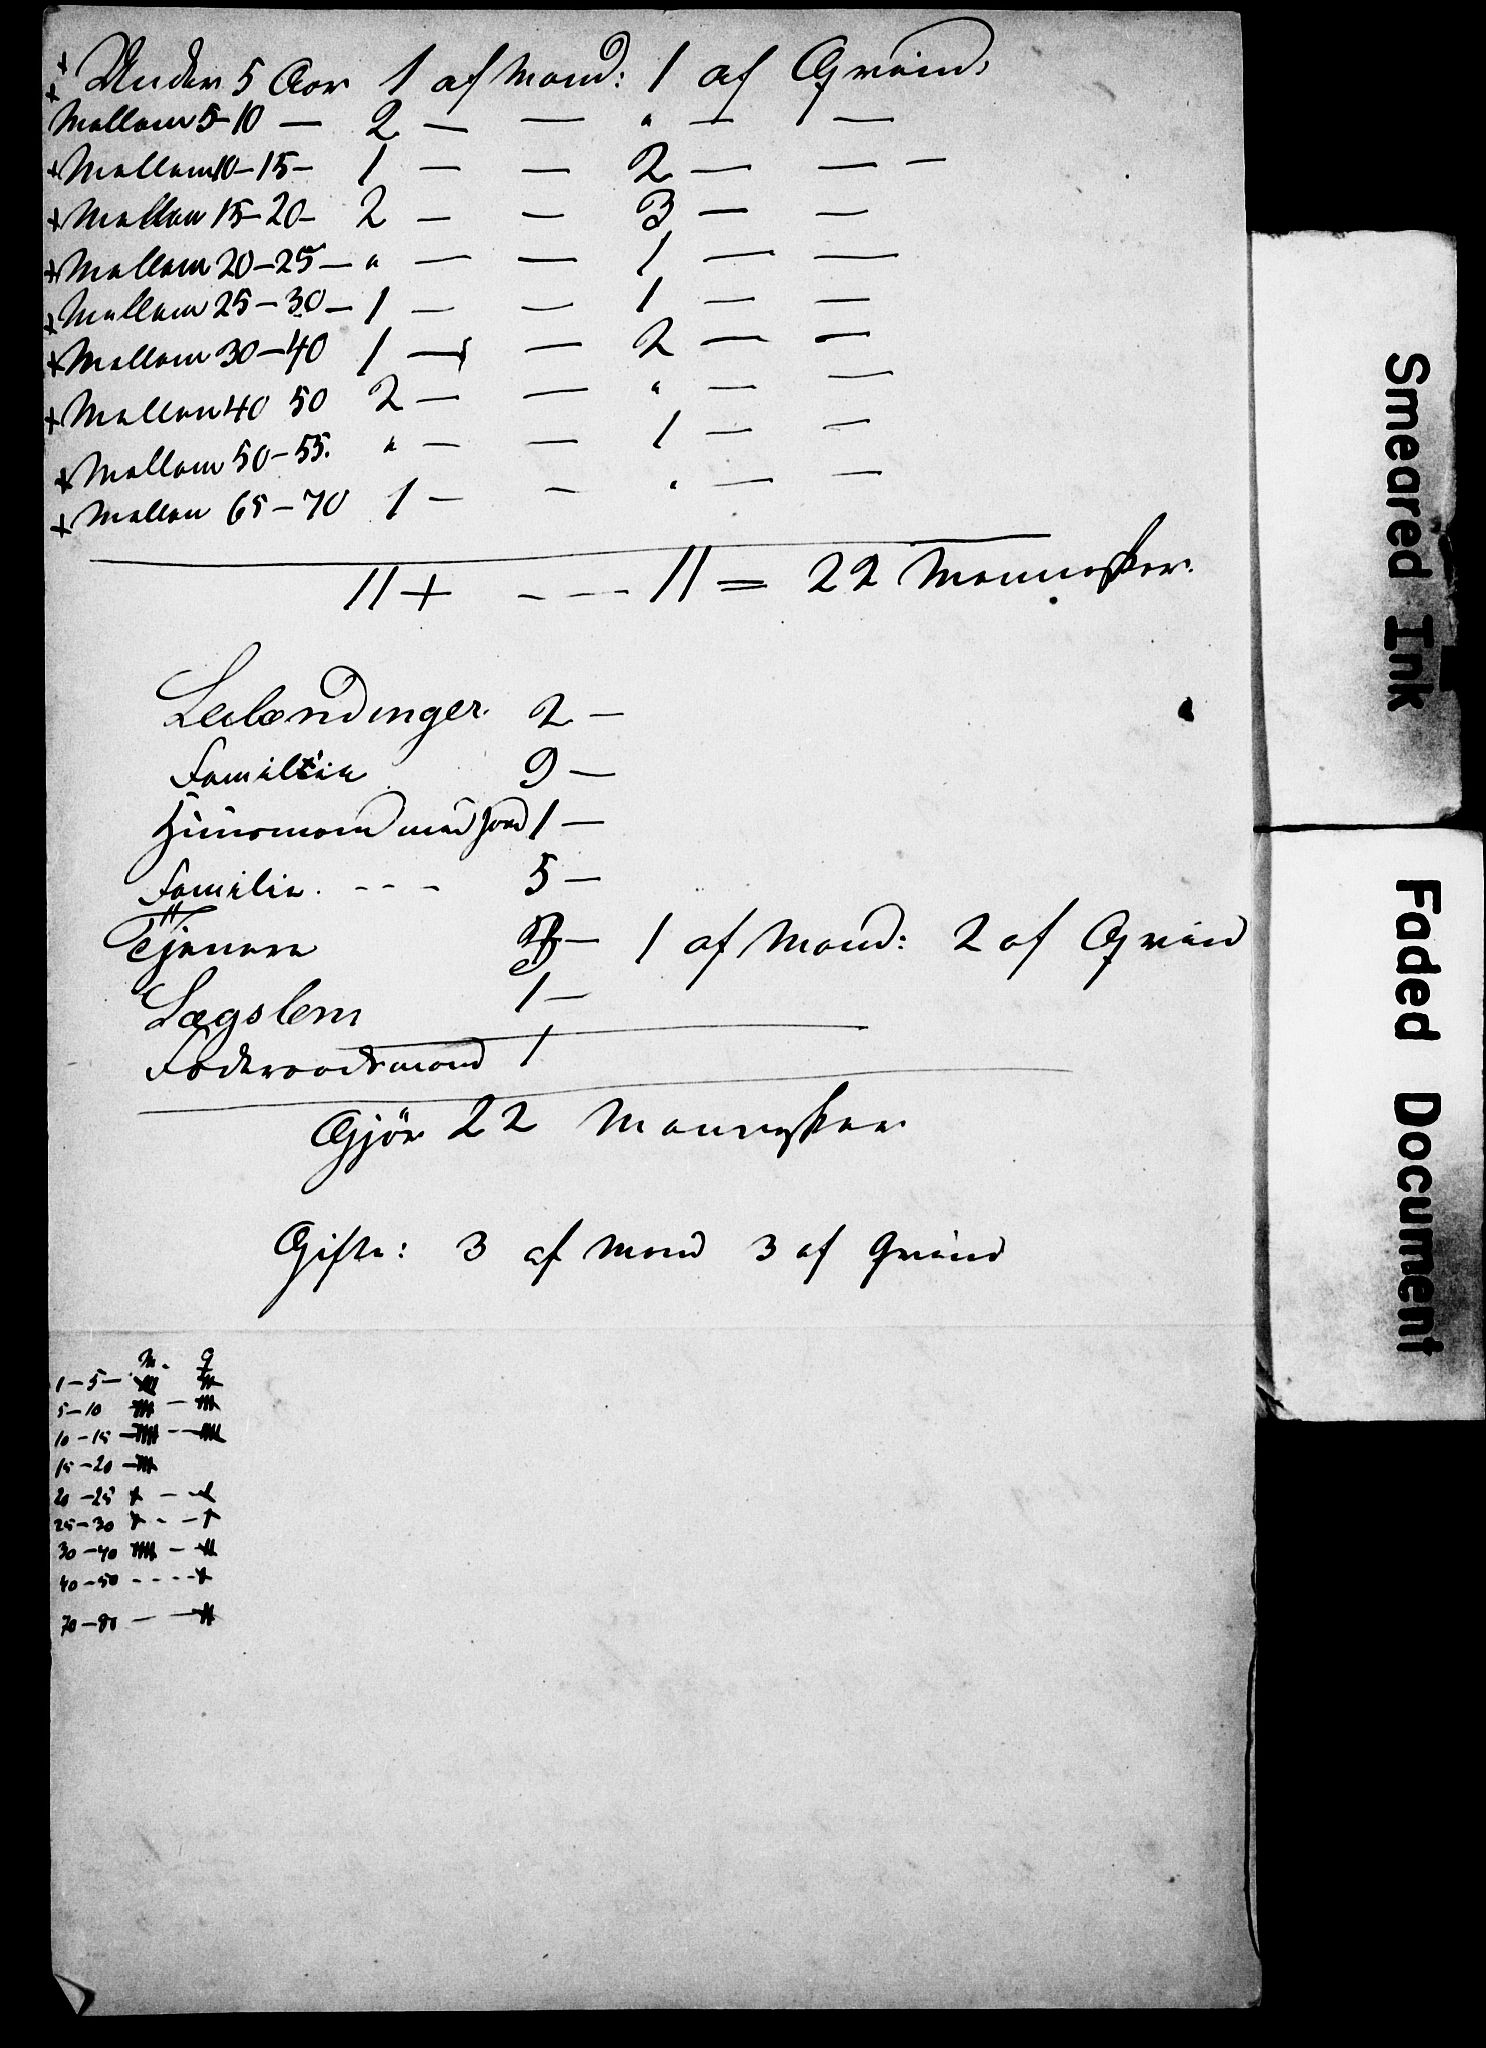 + Under 5 Aar 1 af Mand: 1 af Qvind:
+ Mellem 5-10 — 2 — — " — —
+ Mellem 10-15 - 1 — — 2 — — —
+ Mellem 15-20 - 2 — — 3 — —
+ Mellem 20-25 — " — — 1 — —
+ Mellem 25-30 - 1 — — 1 — —
+ Mellem 30-40 1 — — 2 — —
+ Mellem 40 50 2 — — " — —
+ Mellem 50-55. " — — 1 — —
+ Mellem 65-70 1 — — " — —
11 + - - - 11 = 22 Mennesker.
Leilændinger. 2 —
Familie 9 —
Huusmænd med Jord 1 —
Familie. - - - 5 —
Tjenere 3 — 1 af Mand: 2 af Qvind
Lægslem 1 —
Föderaadsmand 1
Gjör 22 Mennesker
Gifte: 3 af Mand 3 af Qvind
M. Q
1-5-
5-10 —
10-15 — - -
15-20 —
20-25 + —
25-30 + - -
30-40 —
40-50 - - - -
70-80 — —
Smeared Ink
Faded Document